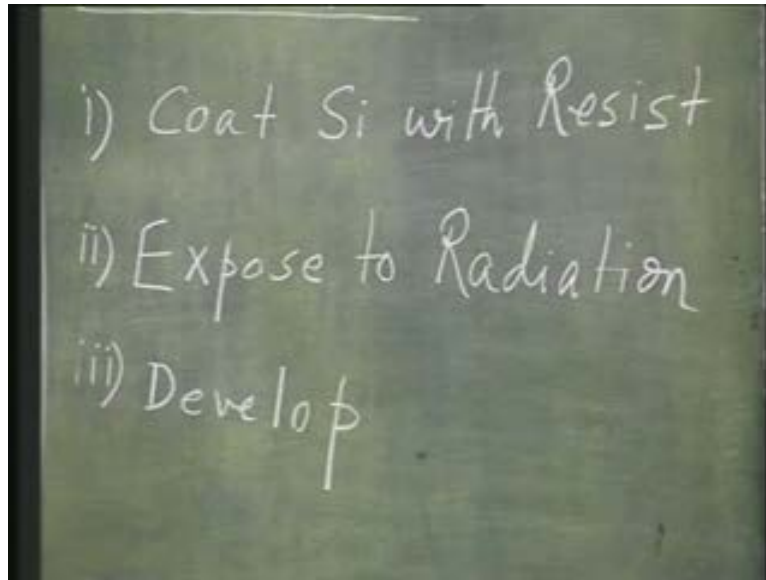 i) Coat Si with Resist
ii) Expose to Radiation
iii) Develop